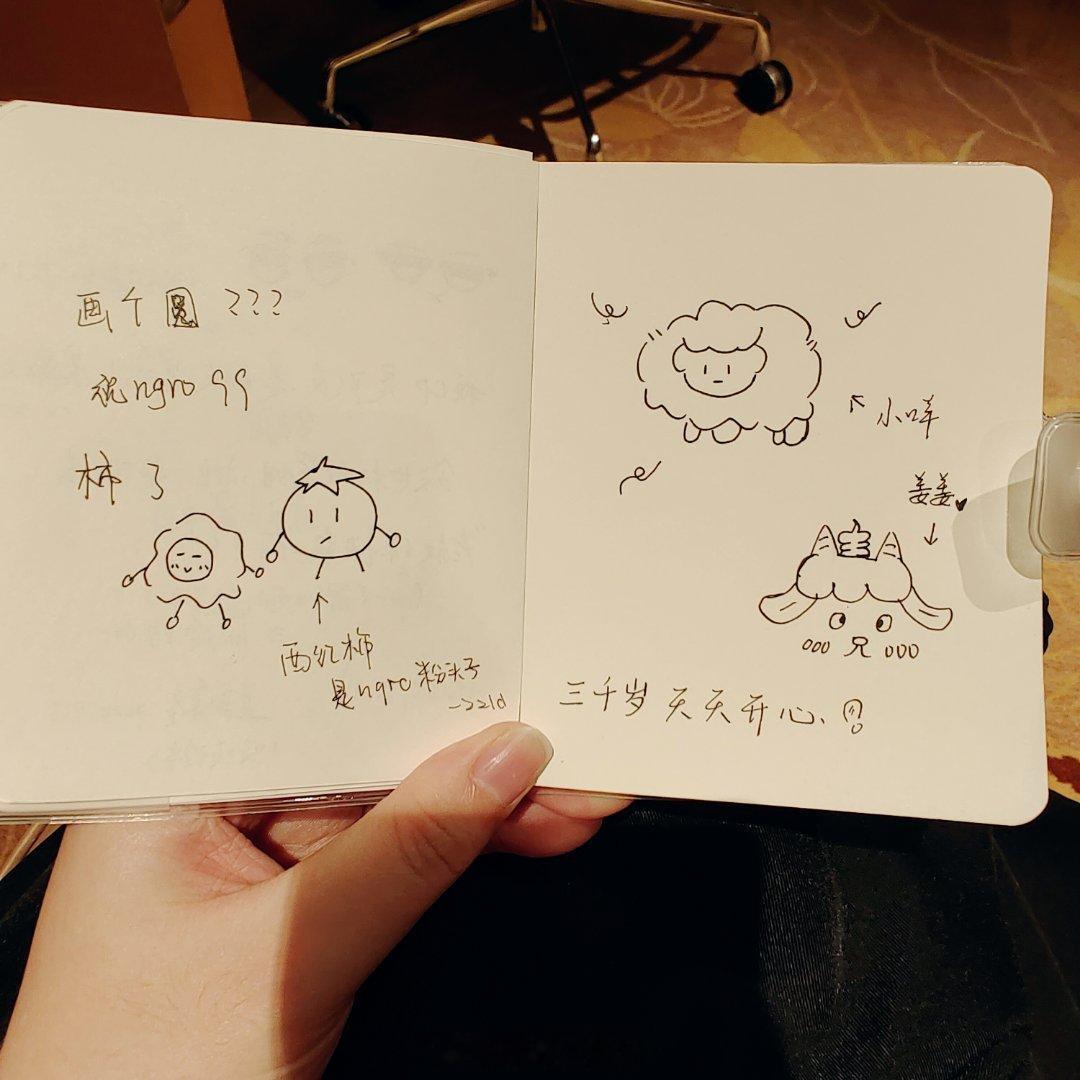 画个圆 ???
祝ngro 99
柿了
西红柿
是ngro粉头子
小咩
姜姜
三千岁 天天开心!